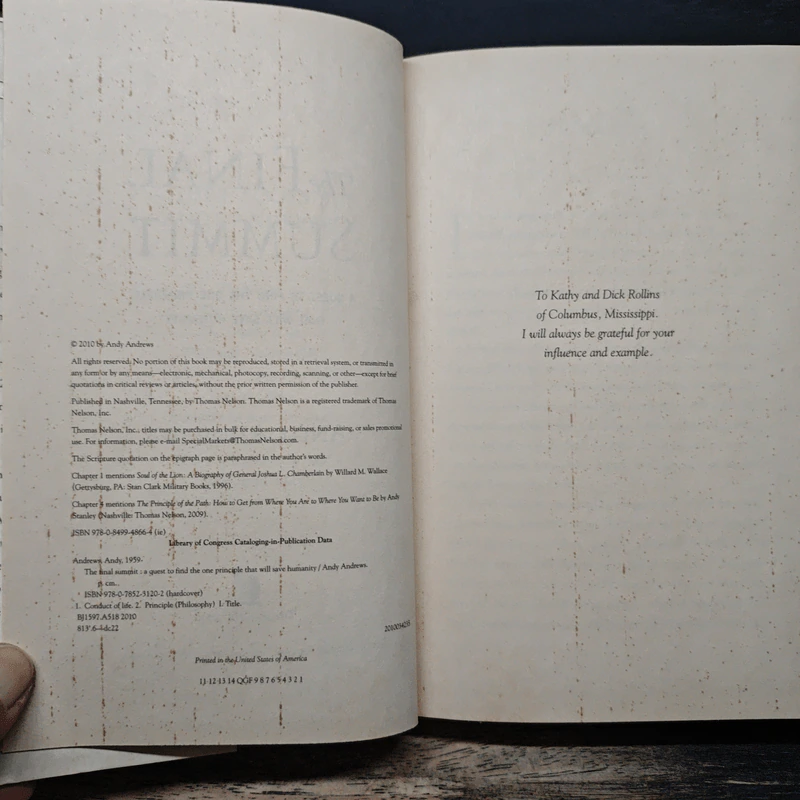 © 2010 by Andy Andrews
All rights reserved. No portion of this book may be reproduced, stored in a retrieval system, or transmitted in
any form or by any means—electronic, mechanical, photocopy, recording, scanning, or other—except for brief
quotations in critical reviews or articles, without the prior written permission of the publisher.
Published in Nashville, Tennessee, by Thomas Nelson. Thomas Nelson is a registered trademark of Thomas
Nelson, Inc.
Thomas Nelson, Inc., titles may be purchased in bulk for educational, business, fund-raising, or sales promotional
use. For information, please e-mail SpecialMarkets@ThomasNelson.com.
The Scripture quotation on the epigraph page is paraphrased in the author's words.
Chapter 1 mentions Soul of the Lion: A Biography of General Joshua L. Chamberlain by Willard M. Wallace
(Gettysburg, PA: Stan Clark Military Books, 1996).
Chapter mentions The Principle of the Path: How to Get from Where You Are to Where You Want to Be by Andy
Stanley (Nashville: Thomas Nelson, 2009).
ISBN 978-0-8499-4866-4 (ie)
Library of Congress Cataloging-in-Publication Data
Andrews, Andy, 1959-
The final summit : a quest to find the one principle that will save humanity / Andy Andrews.
p. cm.
ISBN 978-0-7852-3120-2 (hardcover)
1. Conduct of life. 2. Principle (Philosophy) I. Title.
BJ1597.A518 2010
813'.6—dc22
Printed in the United States of America
11 12 13 14 QGF 9 8 7 6 5 4 3 2 1
To Kathy and Dick Rollins
of Columbus, Mississippi.
I will always be grateful for your
influence and example.